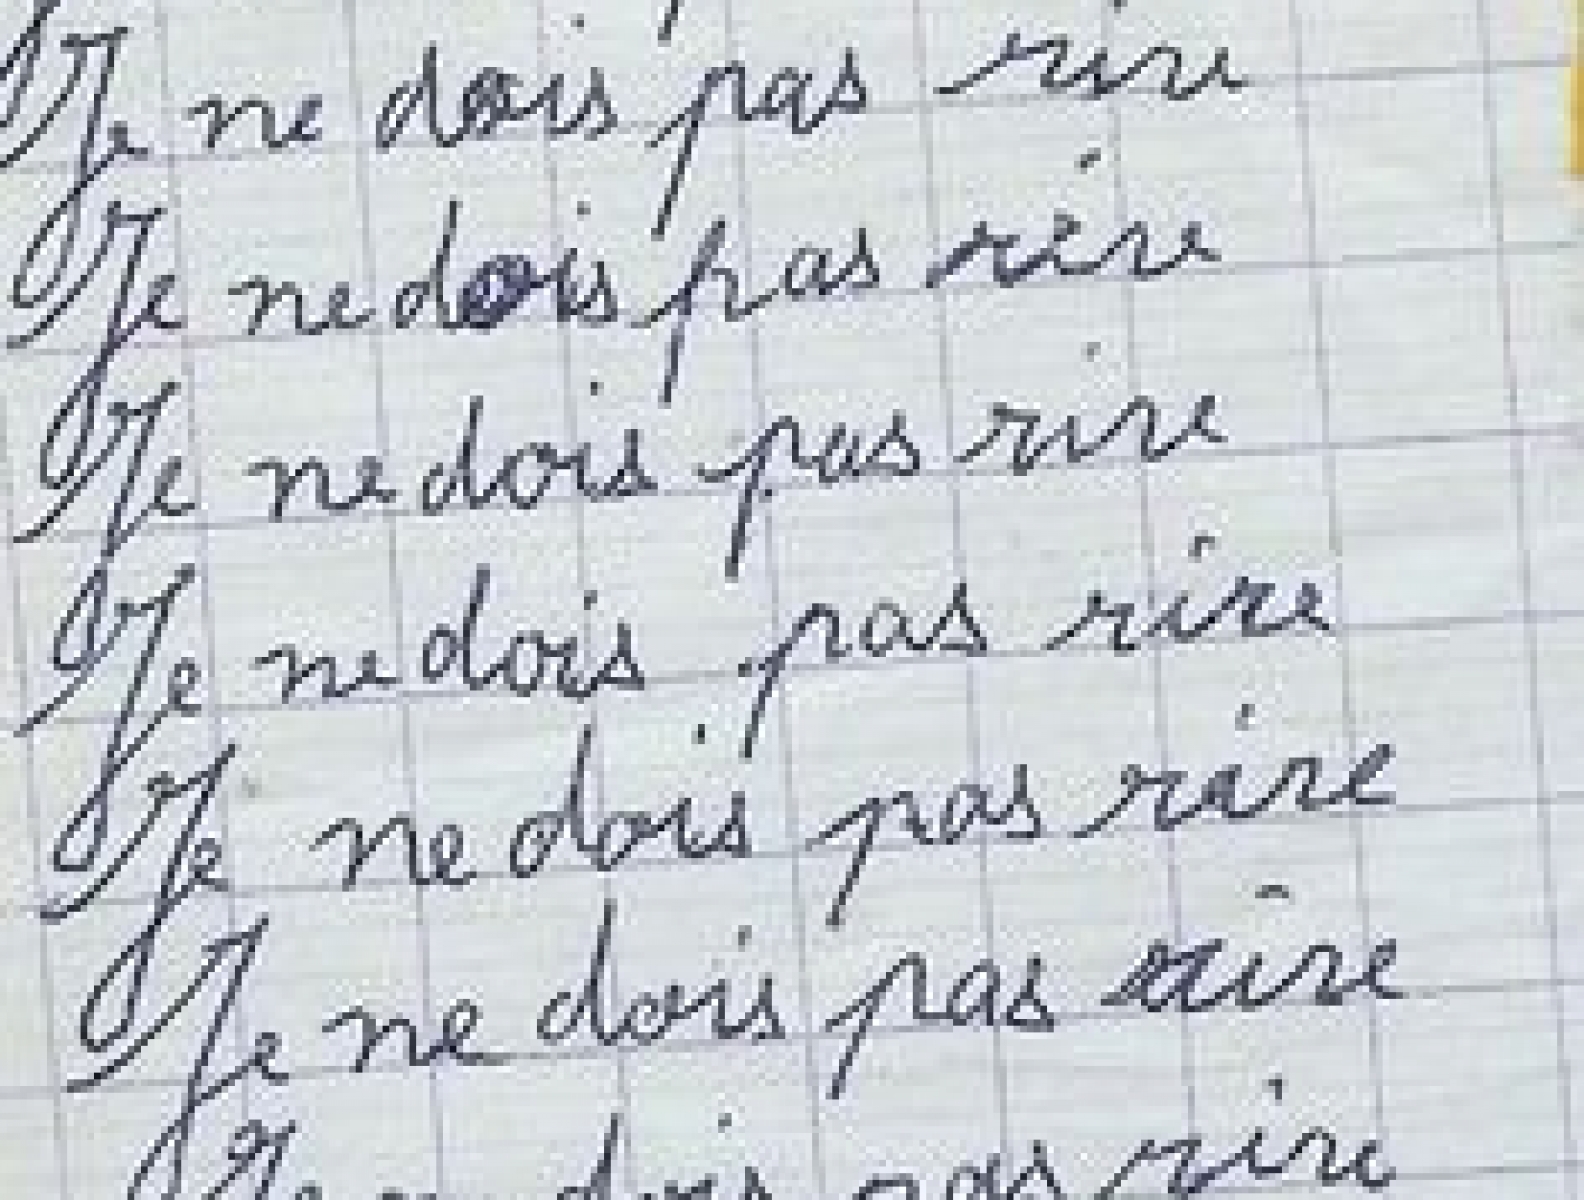 Je ne dois pas rire
Je ne dois pas rire
Je ne dois pas rire
Je ne dois pas rire
Je ne dois pas rire
Je ne dois pas rire
Je ne dois pas rire